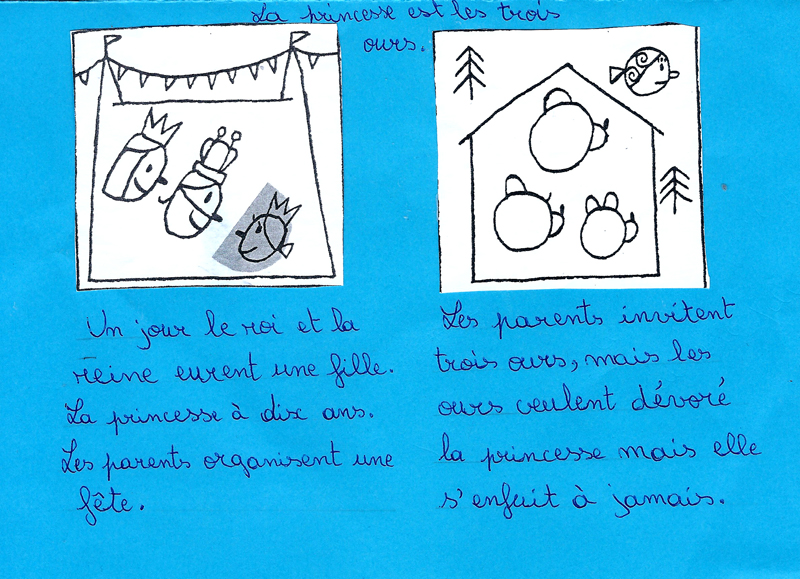 La princesse est les trois
ours.
Un jour le roi et la
reine eurent une fille.
La princesse à dix ans.
Les parents organisent une
fête.
Les parents invitent
trois ours, mais les
ours veulent dévoré
la princesse mais elle
s'enfuit à jamais.